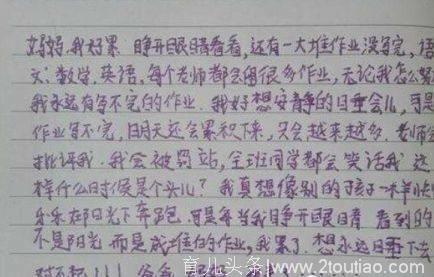 妈妈,我好累 睁开眼睛看看,还有一大堆作业没写完,语
文.数学.英语,每个老师都会留很多作业,无论我怎么努
我永远有写不完的作业.我好想安静的睡会儿,可是
作业写不完,明天还会累积下来,只会越来越多.老师会
批评我.我会被罚站,全班同学都会笑话我 这
样什么时候是个头儿?我真想像别的孩子一样快
乐乐在阳光下奔跑 可是每当我睁开眼睛 看到的
不是阳光 而是成堆的作业,我累了.想永远睡下去
对不起!!!爸爸
育儿头条!www.2toutiao.com